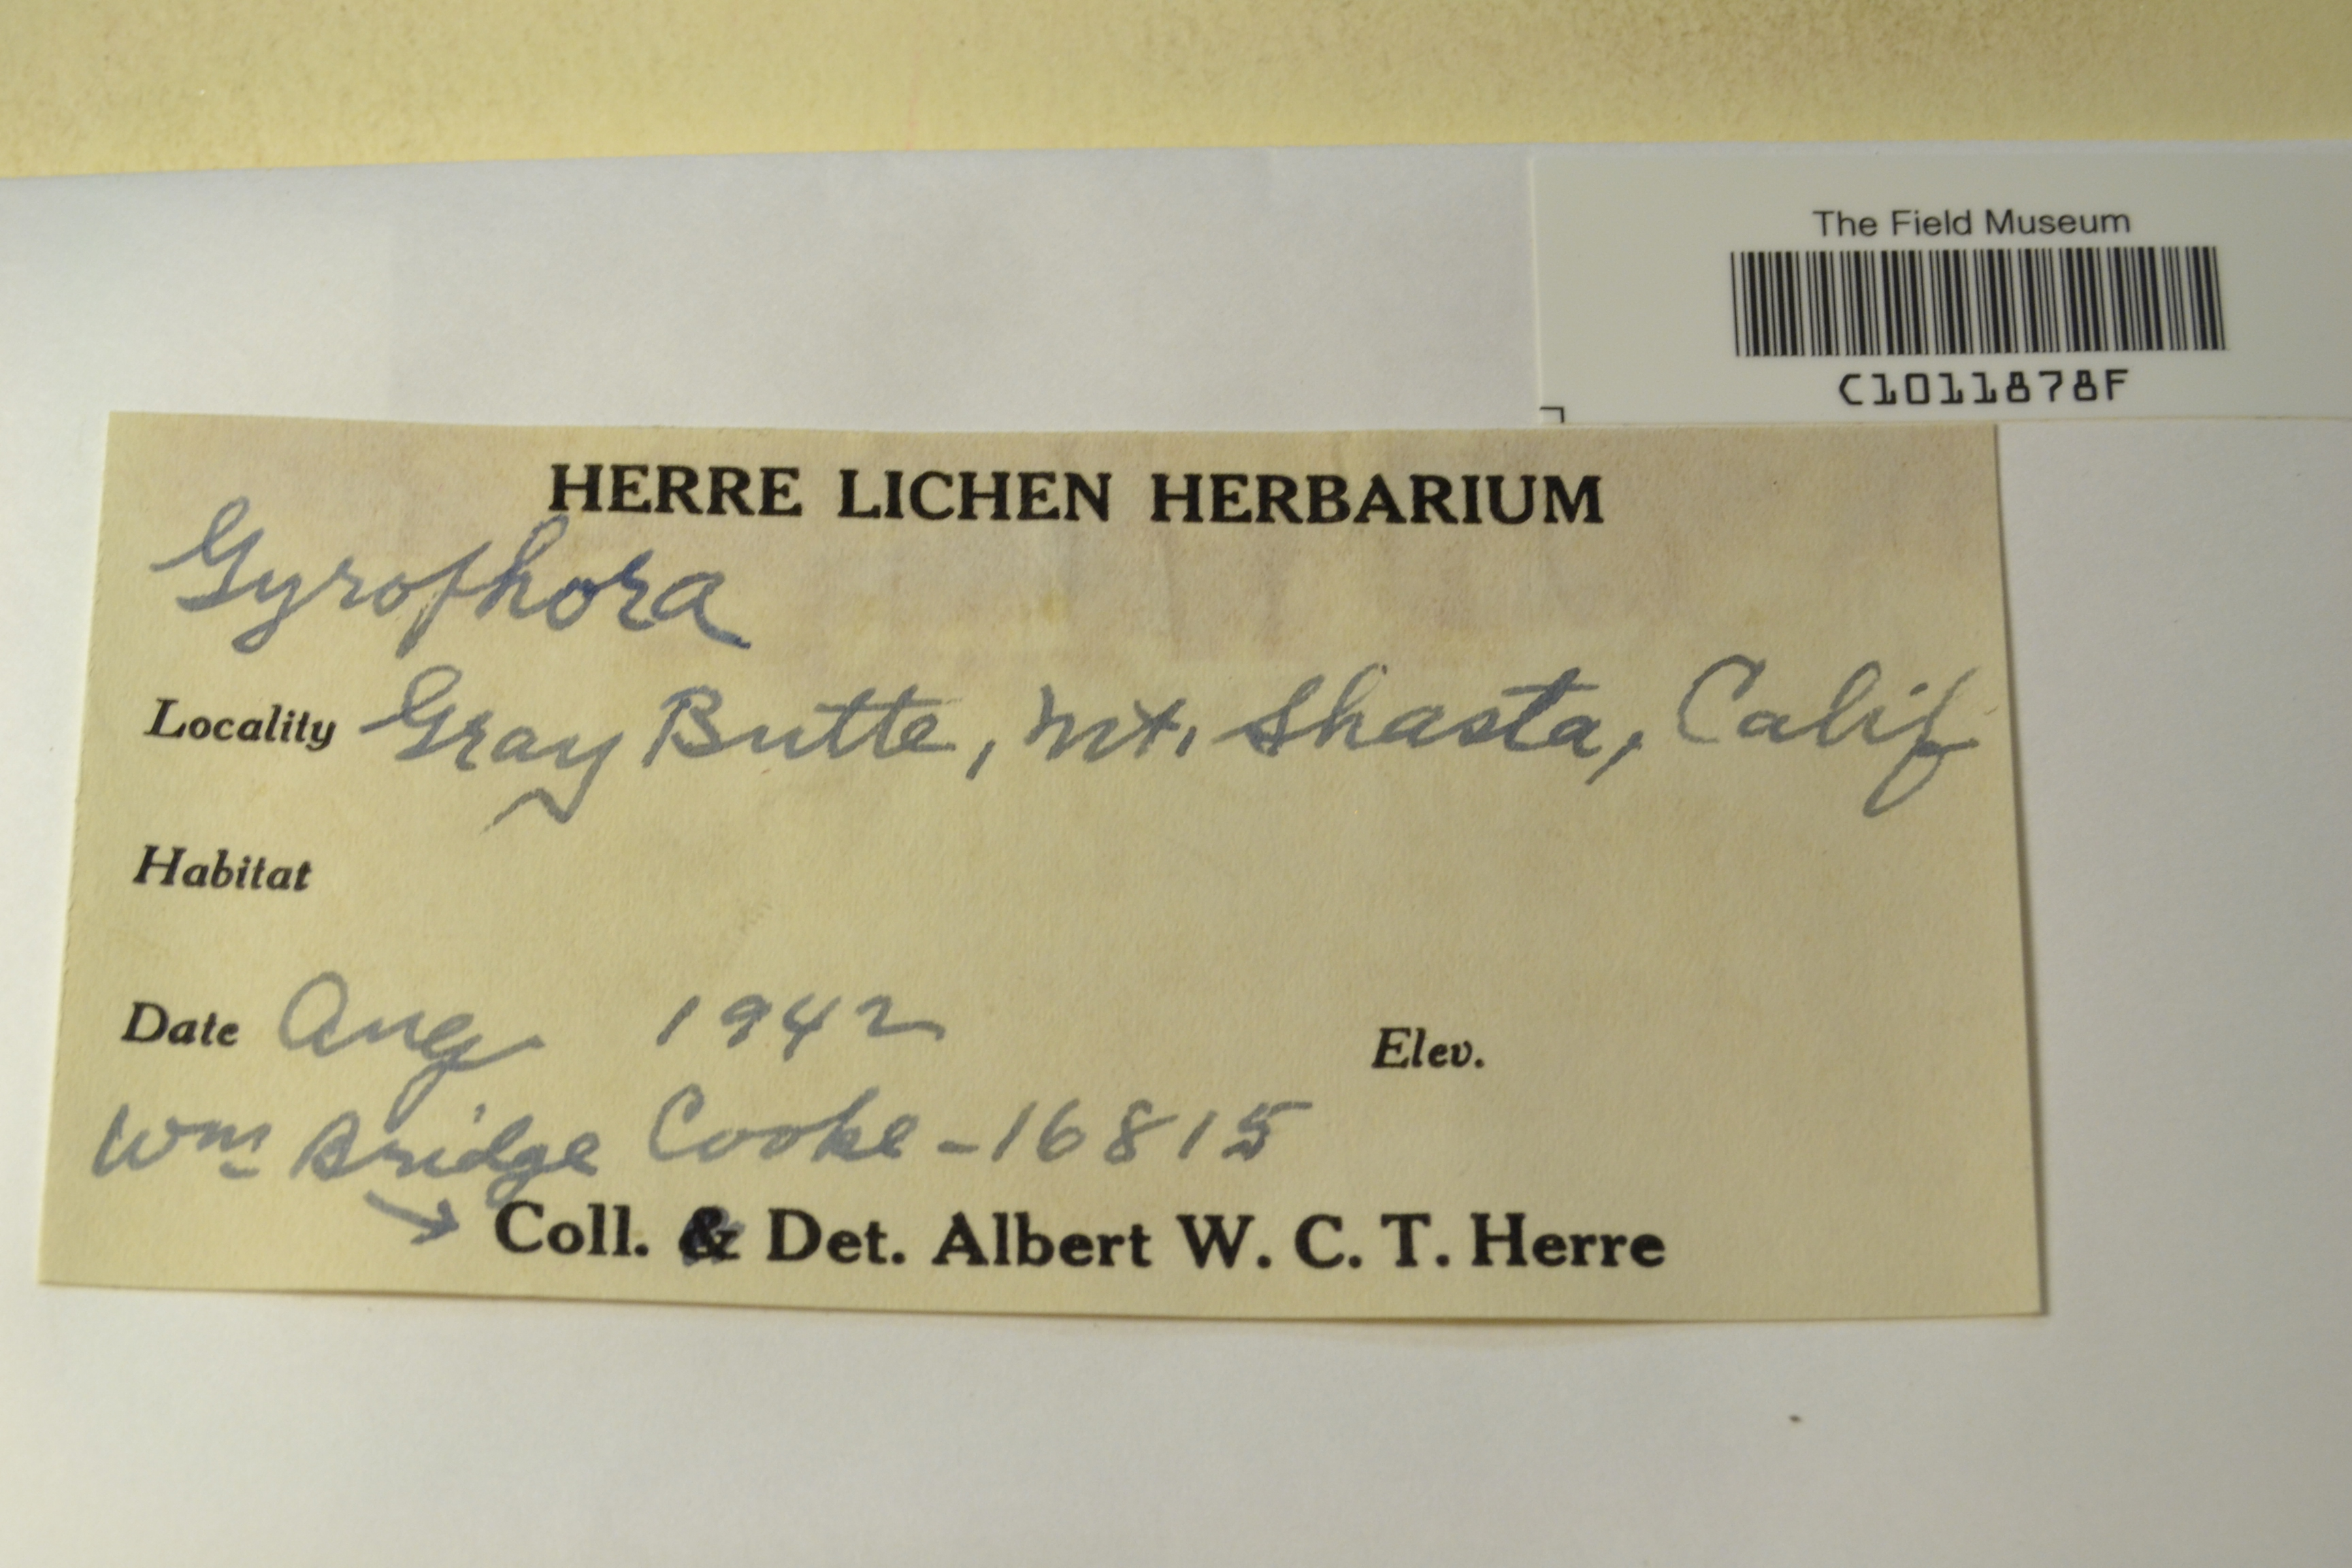 The Field Museum
C1011878F
HERRE LICHEN HERBARIUM
Gyrophora
Locality Gray Butte, Mt. Shasta, Calif
Habitat
Date Aug 1942 Elev.
Wm Bridge Cooke - 16815
→ Coll. & Det. Albert W. C. T. Herre